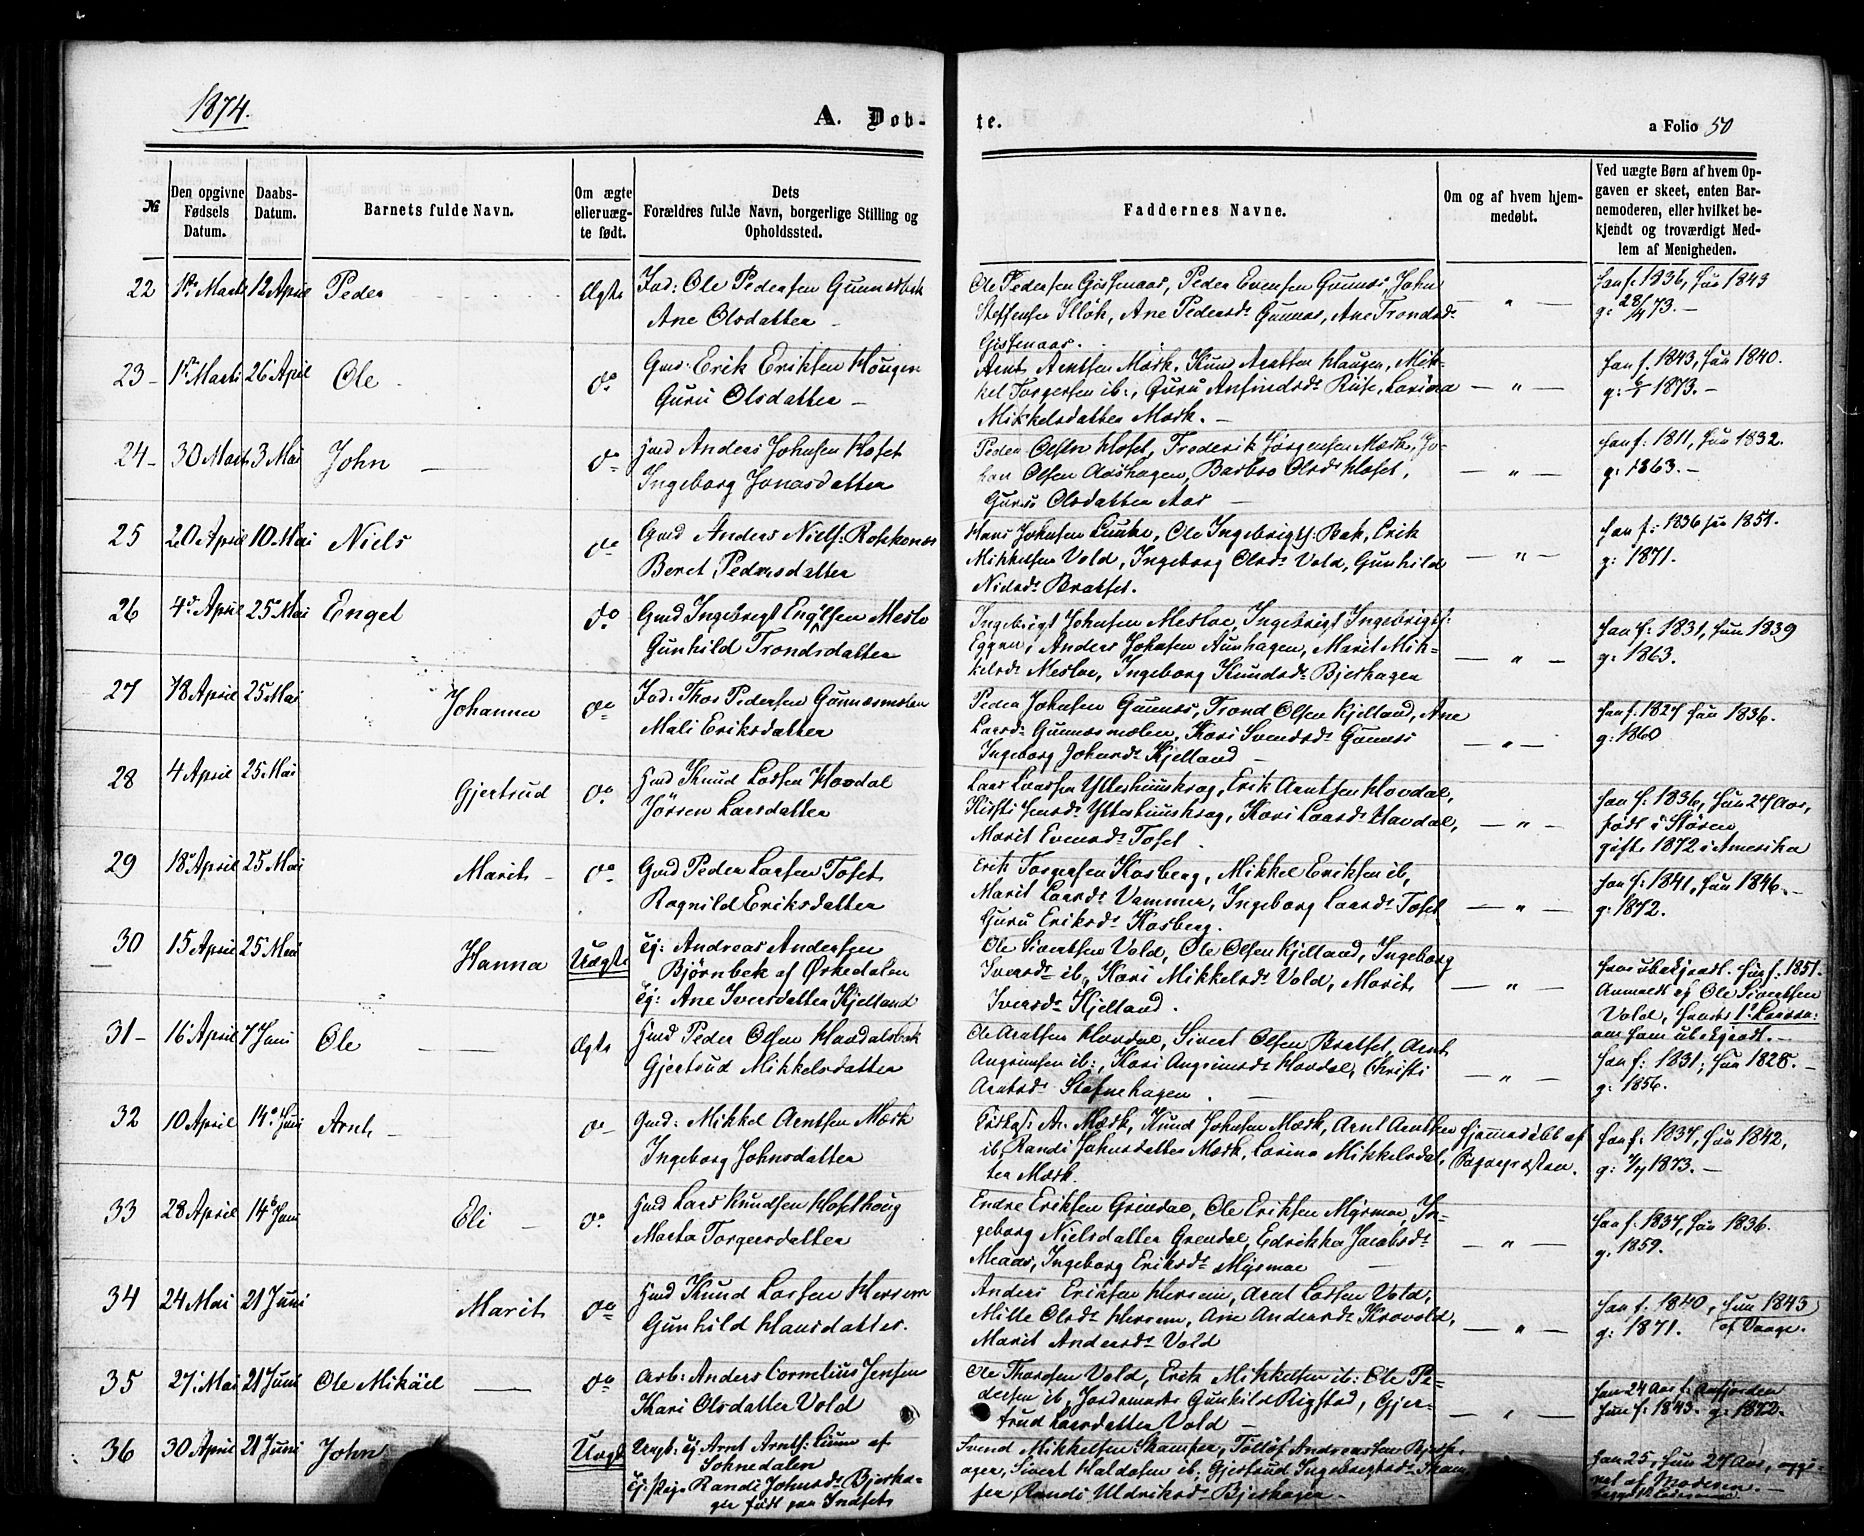 1874.
A. Døb-
te.
a Folio 50
№
Den opgivne
Fødsels
Datum.
Daabs-
Datum.
Barnets fulde Navn.
Om ægte
elleruæg-
te født.
Dets
Forældres fulde Navn, borgerlige Stilling og
Opholdssted.
Faddernes Navne.
Om og af hvem hjem-
medøbt.
Ved uægte Børn af hvem Op-
gaven er skeet, enten Bar-
nemoderen, eller hvilket be-
kjendt og troværdigt Med-
lem af Menigheden.
22 1ste Marts 12 April Peder Ægte
Ind: Ole Pedersen Gunnesbek
Ane Olsdatter
Ole Pedersen Gissenaas, Peder Evensen Gunnes, John
Steffensen Ilhöh, Ane Pedersd. Gunnes, Ane Trondsd.
Gissenaas.
— " —
Han f. 1836, Hun 1843
g. 28/4 73.
23 1ste Marts 26 April Ole do
Gmd. Erik Eriksen Hougen
Guru Olsdatter
Arnt Arntsen Mærk, Knud Arntsen Haugen, Mik-
kel Torgersen ib:, Guru Anfindsd. Rise, Lorina
Mikkelsdatter Mærk.
— " —
Han f. 1843, Hun 1840.
g: 1873.
24 30 Marts 3 Mai John do
Hmd Anders Johnsen Hoset
Ingeborg Jonasdatter
Peder Olsen Hoset, Frederik Jørgensen Mærk, Jo-
han Olsen Aashagen, Barbro Olsd. Hoset,
Guru Olsdatter Aas
— " —
Han f: 1811, Hun 1832.
g: 1863.
25 20 April 10 Mai Niels do
Gmd Anders Niels: Rokkones
Beret Pedersdatter
Hans Johnsen Lunke, Ole Ingebrigts: Bak, Erik
Mikkelsen Vold, Ingeborg Olsd. Vold, Gunhild
Nielsd. Bratset.
— " —
Han f: 1836 Hun 1851.
g: 1871.
26 4de April 25 Mai Engel do
Gmd Ingebrigt Engelsen Meslo
Gunhild Trondsdatter
Ingebrigt Johnsen Mesloe, Ingebrigt Ingebrigts:
Eggen, Anders Johnsen Aunhagen, Marit Mik-
kelsd. Mesloe, Ingeborg Knudsd. Bjerhagen
— " —
Han f: 1831, Hun 1839
g. 1863.
27 18 April 25 Mai Johanna do
Ind: Thos Pedersen Gunnesmolen
Mali Eriksdatter
Peder Johnsen Gunnes, Trond Olsen Kjelland, Ane
Larsd. Gunnesmoelen, Kari Svendsd. Gunnes
Ingeborg Johnsd. Kjelland
— " —
Han f. 1827 Hun 1836.
g: 1860
28 4 April 25 Mai Gjertrud do
Hmd Knud Larsen Hovdal
Jørren Larsdatter
Lars Larsen Ytterhuuskrog, Erik Arntsen Hovdal,
Kristi Jensd. Ytterhuuskrog, Kari Larsd. Havdal,
Marit Evensd. Toset
— " —
Han f. 1836, Hun 27 Aar,
født i Støren
gift 1872 i Amerika
29 18 April 25 Mai Marit do
Gmd Peder Larsen Toset
Ragnild Eriksdatter
Erik Torgersen Kosberg, Mikkel Eriksen ib,
Marit Larsd. Vammer, Ingeborg Larsd. Toset
Guru Eriksd. Kosberg.
— " —
Han f. 1841, Hun 1846.
g: 1872.
30 15 April 25 Mai Hanna Uægte
Ej: Andreas Andersen
Bjørnbek af Ørkedalen
Ej: Ane Iversdatter Kjelland
Ole Sivertsen Vold, Ole Olsen Kjelland, Ingeborg
Iversd. ib, Kari Mikkelsd. Vold, Marit
Iversd. Kjelland.
— " —
Hans ubekjendt. Hun f. 1851.
Anmeldt af Ole Sivertsen
Vold,
om ham ubekjendt.
31 16 April 7 Juni Ole Ægte
Hmd Peder Olsen Havdalsbek
Gjertrud Mikkelsdatter
Ole Arntsen Hovdal, Sivert Olsen Bratset, Arnt
Angrimsen ib:, Kari Angrimsd. Hovdal, Christi
Arntsd. Stefnehagen
— " —
Han f: 1831; Hun 1828.
g: 1856.
32 10 April 14 Juni Arnt do
Gmd: Mikkel Arntsen Mærk
Ingeborg Johnsdatter
A. Mærk, Knud Johnsen Mærk, Arnt Arntsen
ib, Randi Johnsdatter Mærk, Lorina Mikkelsdat-
ter Mærk.
Hjemmedøbt af
Sognepræsten.
Han f: 1837, Hun 1842,
g: 1873.
33 28 April 14 Juni Eli do
Hmd Lars Knudsen Hosethoug
Marta Torgersdatter
Endre Eriksen Grindal, Ole Eriksen Myrmoe, In-
geborg Nielsdatter Grendal, Edrikka Jacobsd.
Meaas, Ingeborg Eriksd. Myrmoe
— " —
Han f. 1837, Hun 1836.
g. 1859.
34 24 Mai 21 Juni Marit do
Hmd Knud Larsen Herrem
Gunhild Hansdatter.
Anders Eriksen Herrem, Arnt Larsen Vold,
Mille Olsd. Herrem, Ane Andersd. Krovold,
Marit Andersd. Vold
— " —
Han f. 1840, Hun 1843
g: 1871. af Vaage.
35 27 Mai 21 Juni Ole Mikael do
Arb: Anders Cornelius Jensen
Kari Olsdatter Vold
Ole Thoresen Vold, Erik Mikkelsen ib: Ole Pe-
dersen ib, Jordemoder Gunhild Rigstad, Gjer-
trud Larsdatter Vold
— " —
Han 24 Aar f: Aafjorden
Hun f: 1843. g: 1872.
36 30 April 21 Juni John Uægte
Ungk: Ej Arnt Arntss: Lium af
Soknedalen
Ej: Pige Randi Johnsd. Bjerha-
gen født paa Indset
Svend Mikkelsen Skamfer, Tollof Andreassen Bjerk-
ager, Sivert Haldosen ib; Gjertrud Ingebrigtsd. Skam-
fer, Randi Uldriksd. Bjerhagen
Han 25, Hun 27 Aar, opgi-
vet af Moderen.